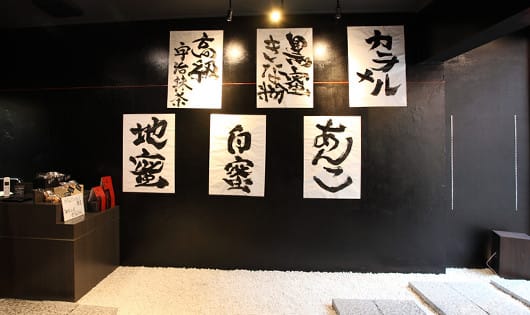 カラメル
黒蜜
きな粉
高級
宇治抹茶
あんこ
白蜜
地蜜